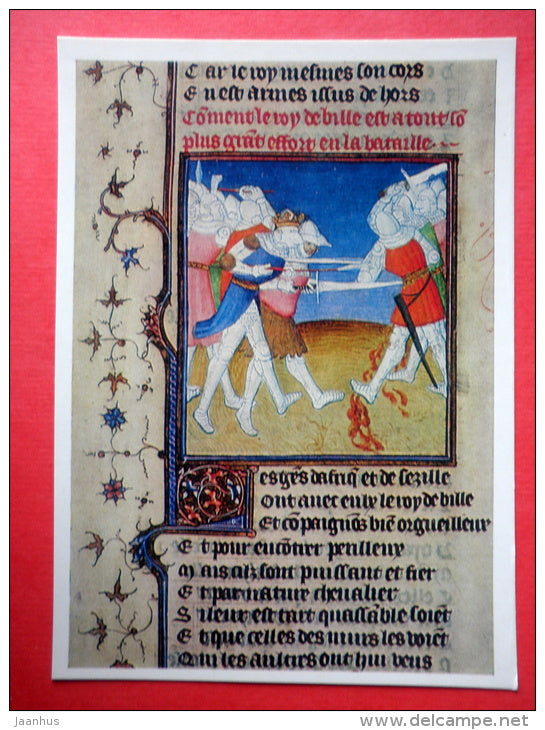 Car le roy mesmes son cors
En est armes issus de hors
Cōment le roy de bille est a tout sō
plus grāt effort en la bataille
es gēs dafriq̄ et de sezille
Ont auec eulx le roy de bille
Et cōpaignōs biē orgueilleux
Et pour encōtrer perilleux
Mais cilz sont puissant et fier
Et par nature cheualier
Si leur est tart quassāble soiēt
Et que celles des murs les voiēt
Qui les aultres ont hui veus
Jaanhus
www.delcampe.net